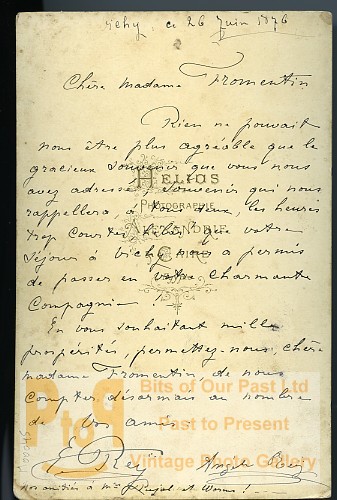 Vichy, ce 26 Juin 1876
Chère Madame Fromentin
Rien ne pouvait
nous être plus agréable que le
gracieux souvenir que vous nous
avez adressé, souvenir qui nous
HELIOS
rappellera à tous deux, les heures
PHOTOGRAPHIE
trop courtes hélas! que votre
séjour à Vichy nous a permis
CAIRE
de passer en votre charmante
Compagnie.
En vous souhaitant mille
prospérités, permettez-nous, chère
madame Fromentin, de nous
compter désormais au nombre
de vos amis.
PtoP
Bits of Our Past Ltd
Past to Present
Vintage Photo Gallery
nos amitiés à Mme Pujol et